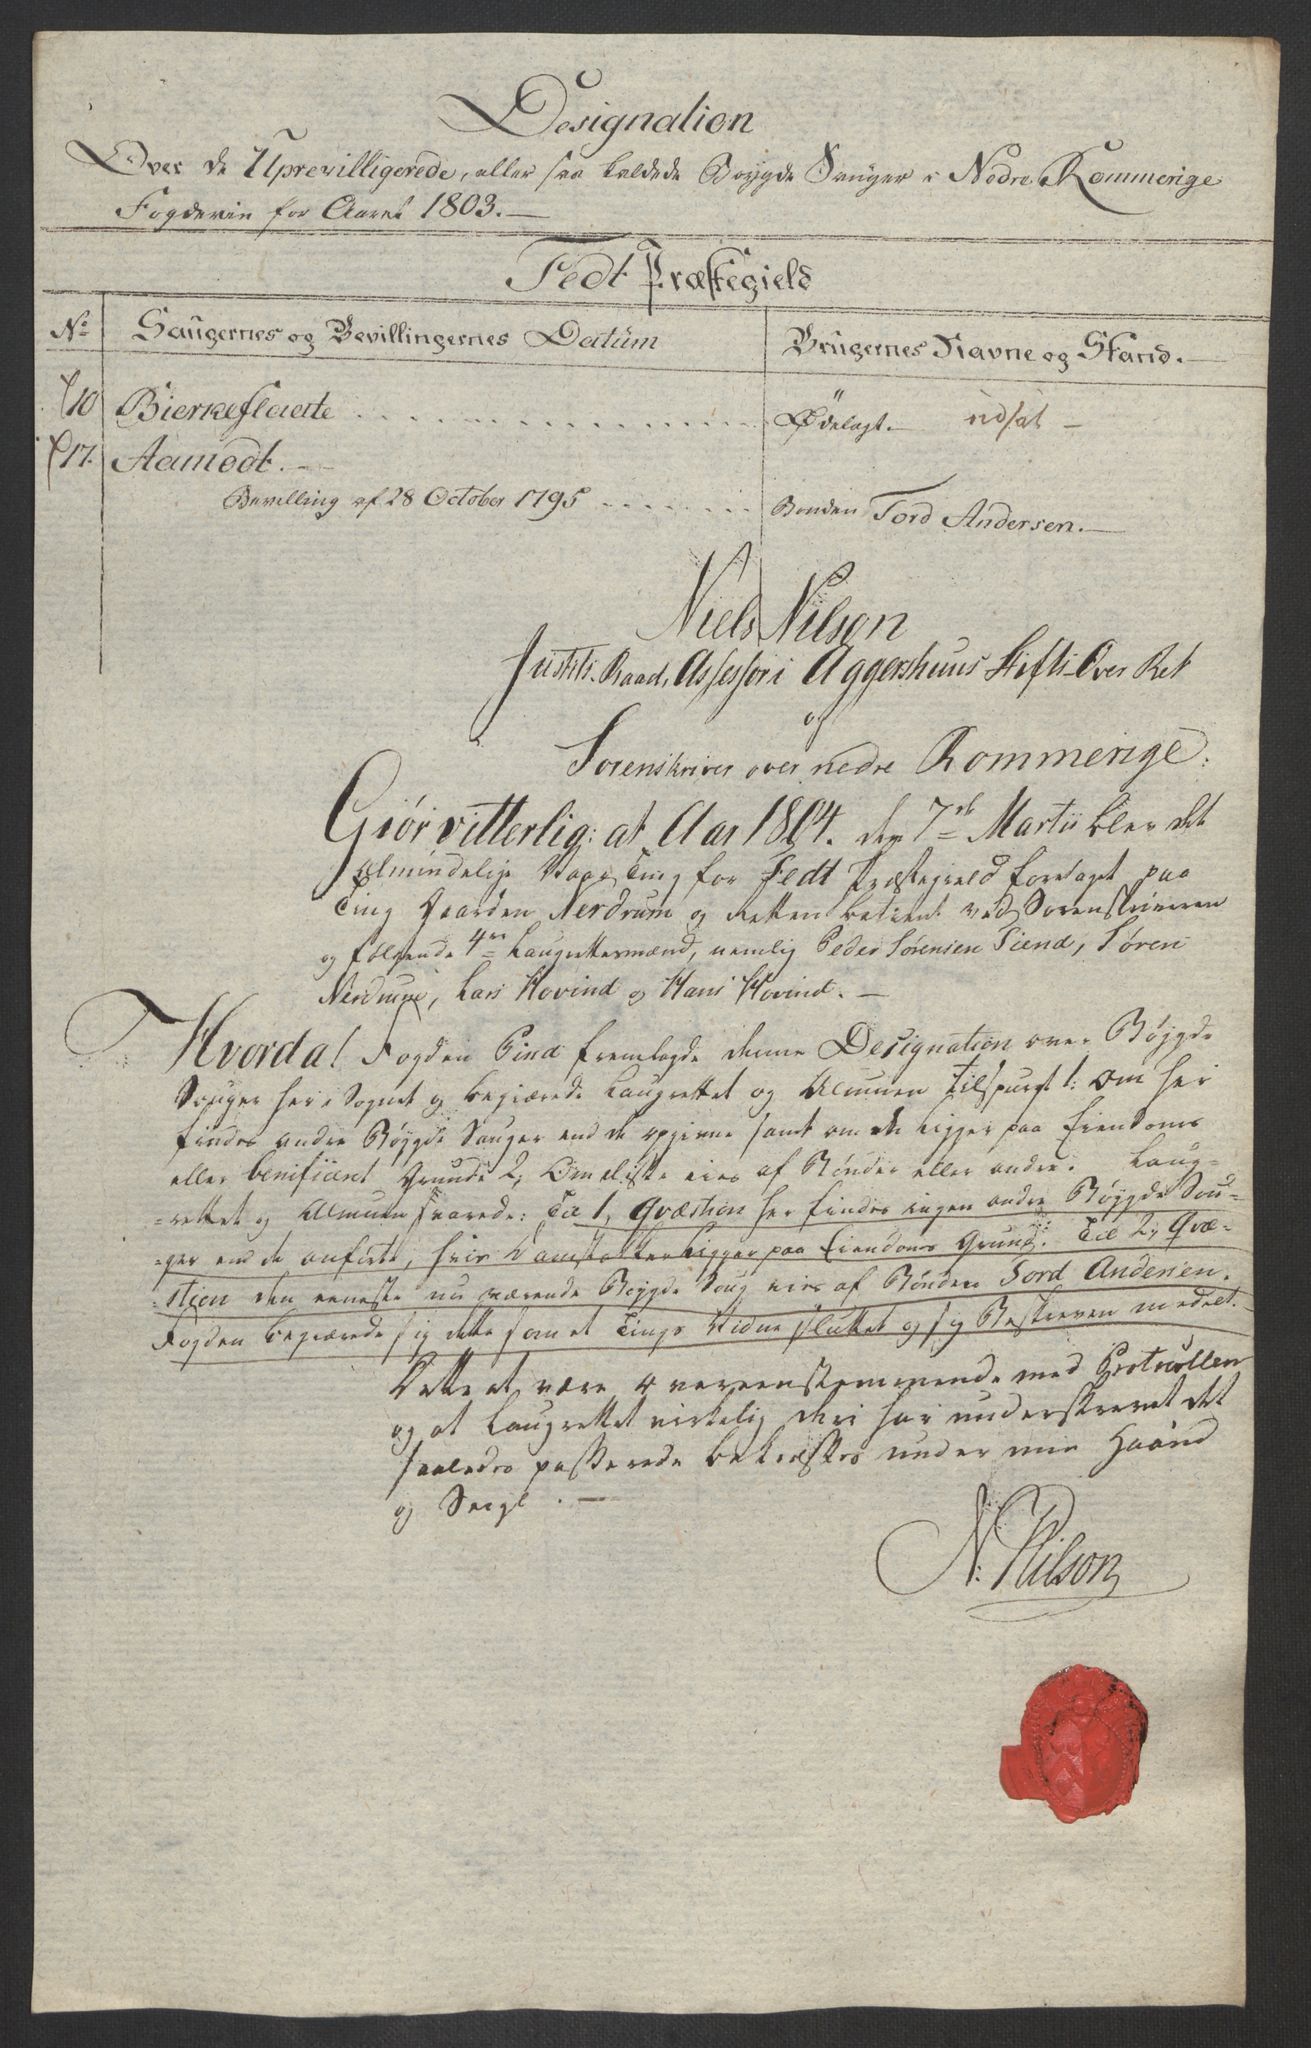 Designation
Over de Uprevilligerede, eller saa kaldede Bøygde Sauger i Nedre Rommerige
Fogderie for Aaret 1803.—
Fedt Præstegield
No Saugernes og Bevillingernes Datum Brugernes Navne og Stand.—
10 Bierkeflaate Ødelagt.— udsat —
17. Aamodt.
Bevilling af 28 October 1795 Bonden Tord Andersen.—
Niels Nilson
Justits-Raad, Assessor i Aggershuus Stifts-Over Ret
og
Sorenskriver over nedre Rommerige:
Giør vitterlig: at Aar 1804. den 7de Martii blev det
almindelige Ting for Fedt Præstegield foretaget paa
Ting Gaarden Nerdrum og Retten betient ved Sorenskriveren
og følgende 4re Laugrettesmænd, nemlig Peder Sørensen Tiend, Søren
Nerdrum, Lars Hovind og Hans Hovind.—
Hvorda! Fogden Pind fremlagde denne Designation over Bøygde
Sauger her i Sognet og begiærede Laugrettet og Almuen tilspurgt 1: om her
findes andre Bøygde Sauger end de opgivne samt om de ligger paa Eiendoms
eller benificeret Grund? 2, Om disse eies af Bønder eller andre. Laug-
-rettet og Almuen svarede: Til 1, Qvæstion her findes ingen andre Bøygde Sau-
-ger end de anførte, hvis Damstokker ligger paa Eiendoms Grund: Til 2, Qvæ-
-stion den eeneste nu værende Bøygde Saug eies af Bonden Tord Andersen.
Fogden begiærede sig dette som et Tings Vidne sluttet og sig Beskreven meddelt.
Dette at være overeenstemmende med Protocollen
og at Laugrettet virkelig deri har underskrevet det
saaledes passerede bekræftes under min Haand
og Seigl.—
N. Nilson